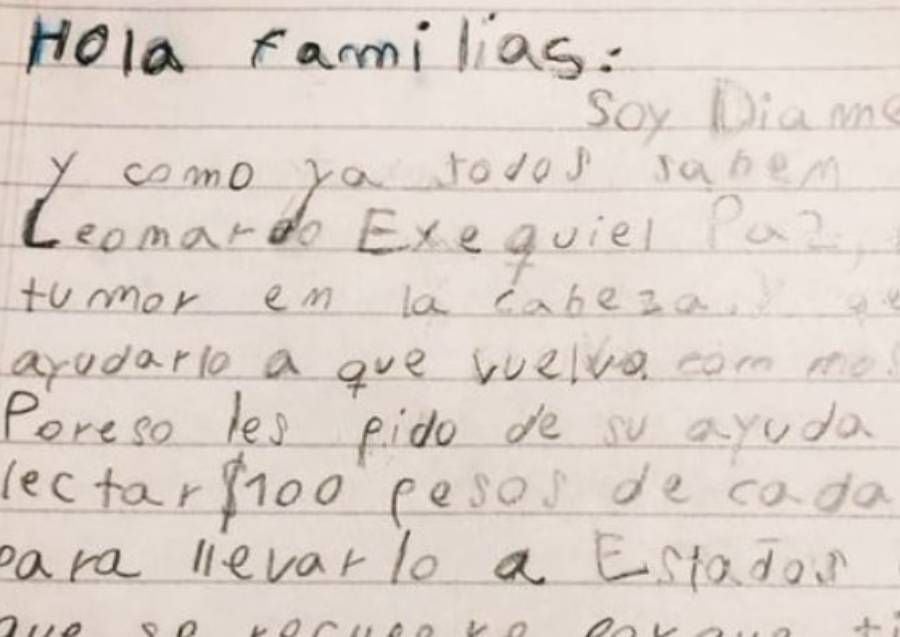 Hola familias:
Soy Diame
y como ya todos saben
Leomardo Exequiel Paz,
tumor en la cabeza. y qe
ayudarlo a que vuelva com mos
Poreso les pido de su ayuda
lectar $100 pesos de cada
para llevarlo a Estados
que se recupere porque ti